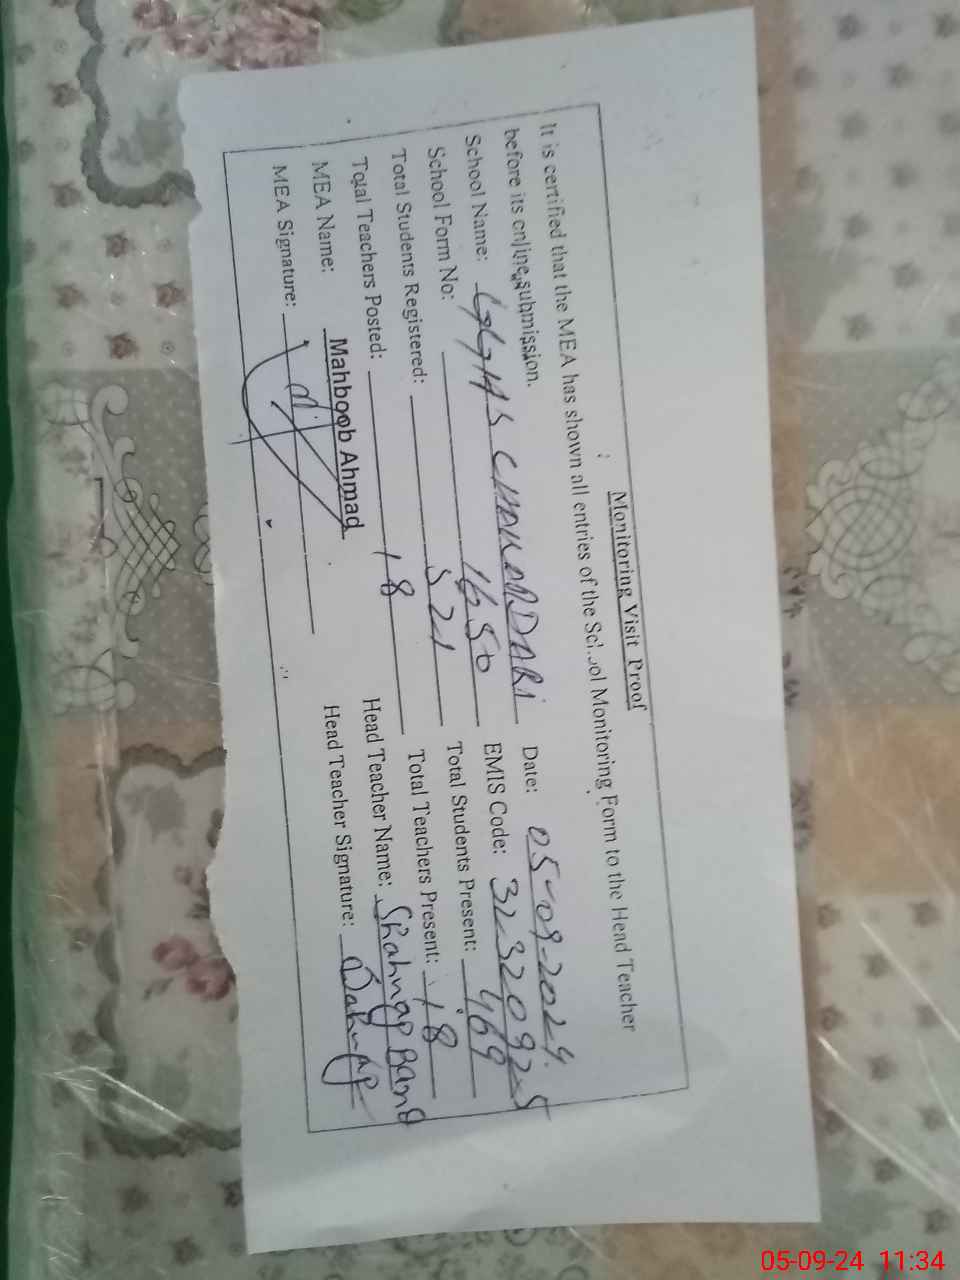 Monitoring Visit Proof
It is certified that the MEA has shown all entries of the School Monitoring Form to the Head Teacher
before its online submission.
School Name: GGHS CHAK Date: 05-09-2024
School Form No: 1650 EMIS Code: 32320925
Total Students Registered: 521 Total Students Present: 469
Total Teachers Posted: 18 Total Teachers Present: 18
MEA Name: Mahboob Ahmad Head Teacher Name: Shahnaz Bano
MEA Signature: Head Teacher Signature:
05-09-24 11:34